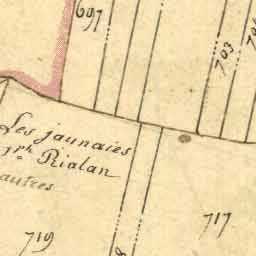 697
703
Les jaunaies
Rialan
autres
717
719